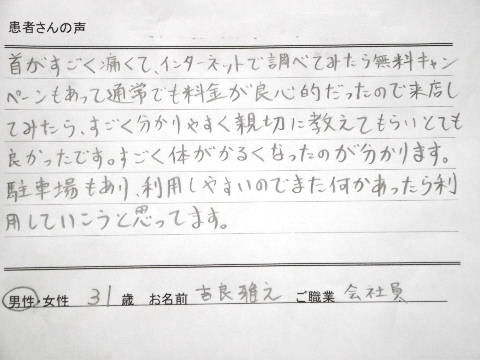 患者さんの声
首がすごく痛くて、インターネットで調べてみたら無料キャン
ペーンもあって通常でも料金が良心的だったので来店し
てみたら、すごく分かりやすく親切に教えてもらいとても
良かったです。すごく体がかるくなったのが分かります。
駐車場もあり、利用しやすいのでまた何かあったら利
用していこうと思ってます。
男性・女性 31 歳 お名前 吉良雅之 ご職業 会社員